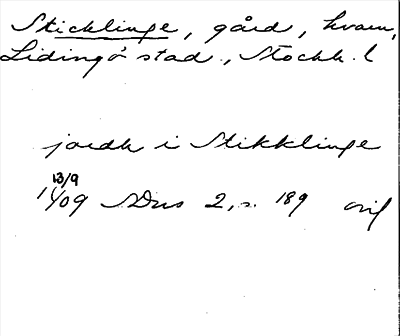 Sticklinge, gård, kvarn,
Lidingö stad, Stockh. l
jordh i Stikklinge
13/9
1409 SDns 2, s. 189 avil